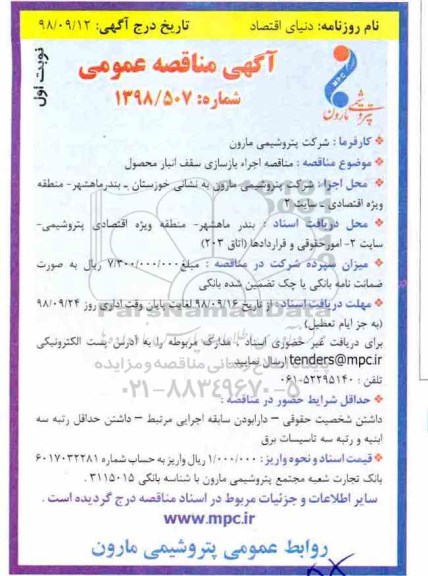 نام روزنامه: دنیای اقتصاد
تاریخ درج آگهی: ۹۸/۰۹/۱۲
نوبت اول
آگهی مناقصه عمومی
شماره: ۱۳۹۸/۵۰۷
MPC
پتروشیمی مارون
کارفرما : شرکت پتروشیمی مارون
موضوع مناقصه : مناقصه اجراء بازسازی سقف انبار محصول
محل اجرا : شرکت پتروشیمی مارون به نشانی خوزستان ـ بندرماهشهر- منطقه
ویژه اقتصادی ـ سایت ۲
محل دریافت اسناد : بندر ماهشهر- منطقه ویژه اقتصادی پتروشیمی-
سایت ۲- امورحقوقی و قراردادها (اتاق ۲۰۳)
میزان سپرده شرکت در مناقصه : مبلغ ۷/۳۰۰/۰۰۰/۰۰۰ ریال به صورت
ضمانت نامه بانکی یا چک تضمین شده بانکی
مهلت دریافت اسناد : از تاریخ ۹۸/۰۹/۱۶ لغایت پایان وقت اداری روز ۹۸/۰۹/۲۴
(به جز ایام تعطیل)
برای دریافت غیر حضوری اسناد ، مدارک مربوطه را به آدرس پست الکترونیکی
tenders@mpc.ir ارسال نمایید.
تلفن : ۵۲۲۹۵۱۴۰-۰۶۱
۰۲۱-۸۸۳۴۹۶۷۰-۵
حداقل شرایط حضور در مناقصه :
داشتن شخصیت حقوقی – دارابودن سابقه اجرایی مرتبط – داشتن حداقل رتبه سه
ابنیه و رتبه سه تاسیسات برق
قیمت اسناد و نحوه واریز : ۱/۰۰۰/۰۰۰ ریال واریز به حساب شماره ۶۰۱۷۰۳۲۲۸۱
بانک تجارت شعبه مجتمع پتروشیمی مارون با شناسه بانکی ۳۱۱۵۰۱۵ .
سایر اطلاعات و جزئیات مربوط در اسناد مناقصه درج گردیده است .
www.mpc.ir
روابط عمومی پتروشیمی مارون